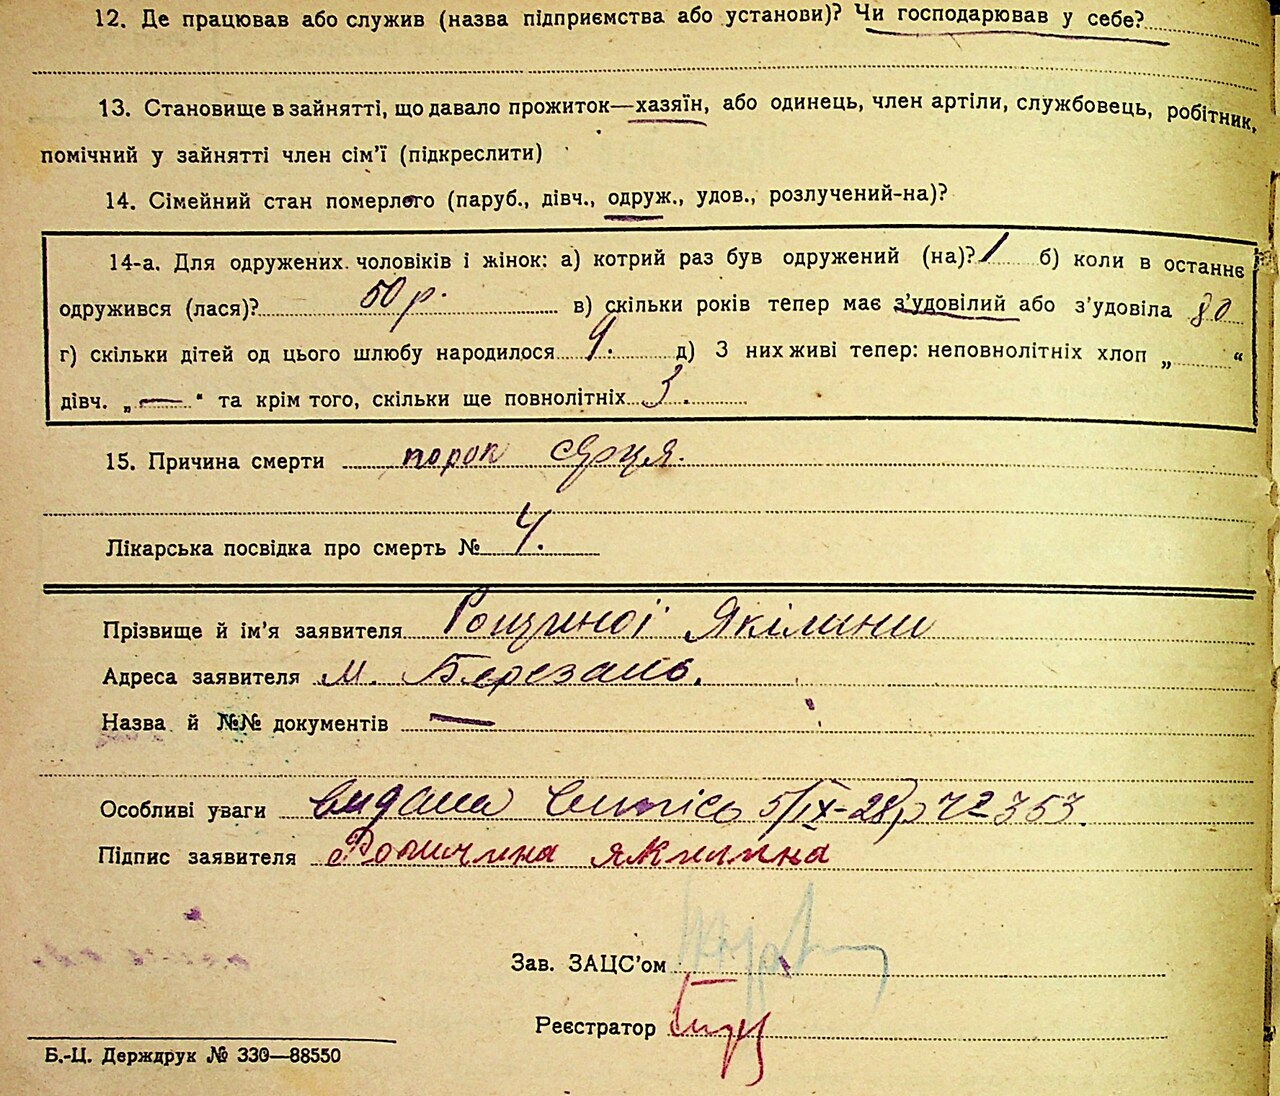 12. Де працював або служив (назва підприємства або установи)? Чи господарював у себе?
13. Становище в зайнятті, що давало прожиток—хазяїн, або одинець, член артіли, службовець, робітник,
помічний у зайнятті член сім'ї (підкреслити)
14. Сімейний стан померлого (паруб., дівч., одруж., удов., розлучений-на)?
14-а. Для одружених чоловіків і жінок: а) котрий раз був одружений (на)? 1 б) коли в останнє
одружився (лася)? 50 р. в) скільки років тепер має з'удовілий або з'удовіла 80
г) скільки дітей од цього шлюбу народилося 9. д) З них живі тепер: неповнолітніх хлоп „ “
дівч. „ — " та крім того, скільки ще повнолітніх 3.
15. Причина смерти порок серця.
Лікарська посвідка про смерть № 4.
Прізвище й ім'я заявителя Рощиної Якілини
Адреса заявителя м. Березань.
Назва й №№ документів —
Особливі уваги видана 5/IX-28 р 353.
Підпис заявителя Якилина
Зав. ЗАЦС'ом
Реєстратор
Б.-Ц. Держдрук № 330—88550